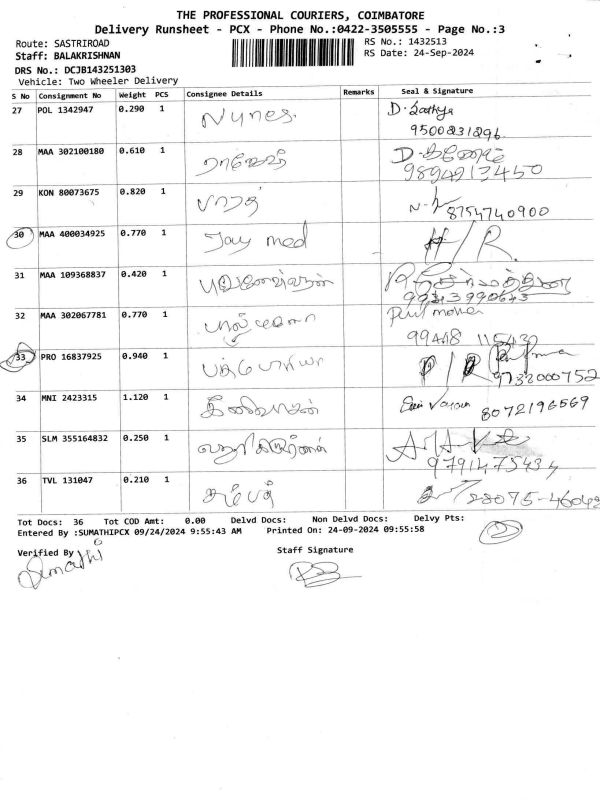 THE PROFESSIONAL COURIERS, COIMBATORE
Delivery Runsheet - PCX - Phone No.:0422-3505555 - Page No.:3
Route: SASTRIROAD RS No.: 1432513
Staff: BALAKRISHNAN RS Date: 24-Sep-2024
DRS No.: DCJB143251303
Vehicle: Two Wheeler Delivery
S No Consignment No Weight PCS Consignee Details Remarks Seal & Signature
27 POL 1342947 0.290 1 Nynes. D. Sathya
9500231296
28 MAA 302100180 0.610 1 ராஜேஷ்
29 KON 80073675 0.820 1 பாரத் 8754740900
30 MAA 400034925 0.770 1 Jay med H/R.
31 MAA 109368837 0.420 1 புவனேஸ்வரன்
32 MAA 302067781 0.770 1
99448
33 PRO 16837925 0.940 1
9732000752
34 MNI 2423315 1.120 1 8072196569
35 SLM 355164832 0.250 1
36 TVL 131047 0.210 1 சம்பத்
Tot Docs: 36 Tot COD Amt: 0.00 Delvd Docs: Non Delvd Docs: Delvy Pts:
Entered By :SUMATHIPCX 09/24/2024 9:55:43 AM Printed On: 24-09-2024 09:55:58
Verified By Staff Signature
Sumathi